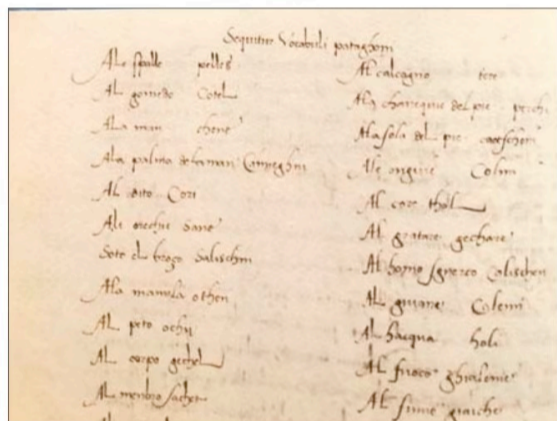 Sequitur Vocabuli pataghoni
Ale spalle pelles
Al gomedo Cotel
Ala man chene
Ala palma dela man Canneghin
Al dito Cori
Ali orechii Sane
Soto el brazo Salischin
Ala mamela othen
Al peto ochii
Al corpo gechel
Al menbro sachet
Al calcagno tere
Ala chavequie del pie perchi
Ala sola del pie caotscheni
Ale ongie Colim
Al core thol
Al gratare gechare
Al homo sguerco Calischen
Al giovane Calemi
Al hacqua holi
Al fuoco ghialeme
Al fume giaiche